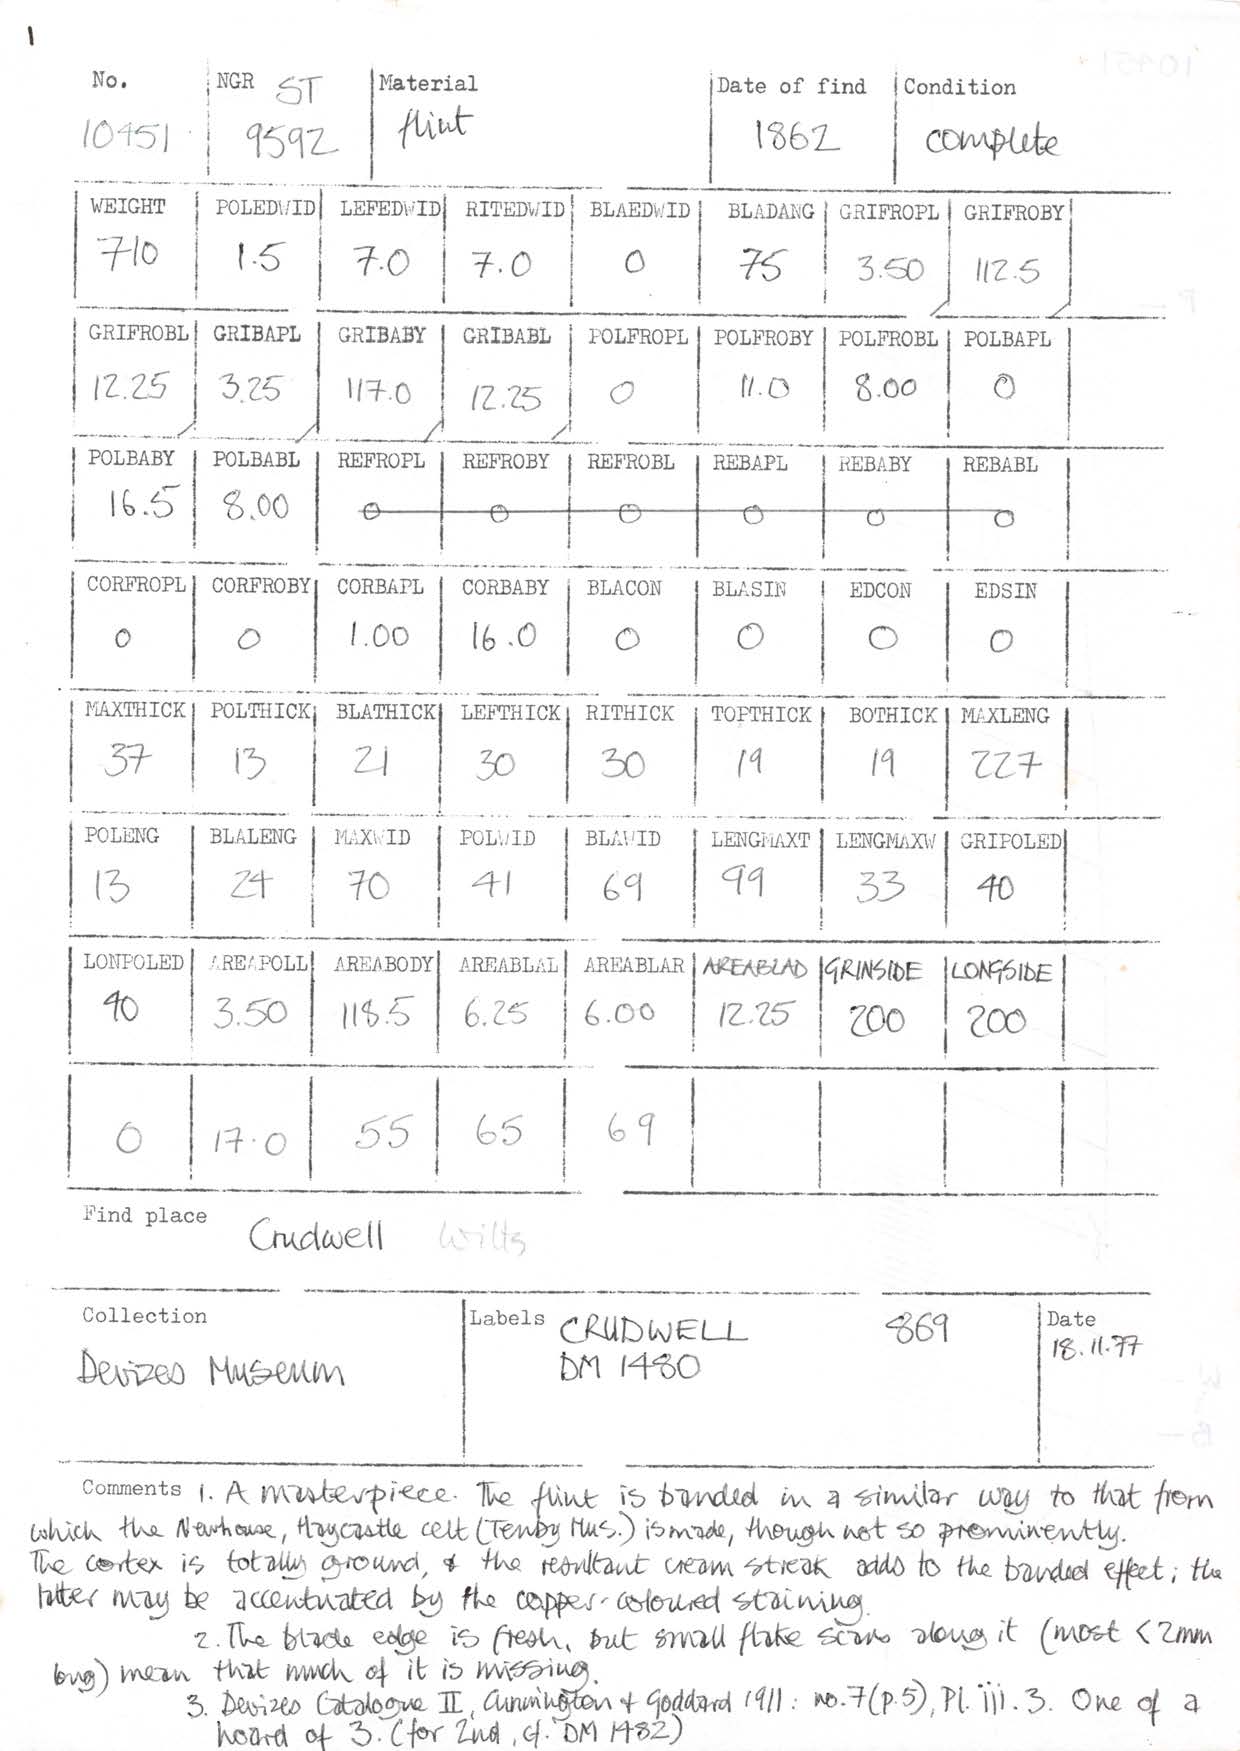 1
No. NGR ST Material Date of find Condition
10451 9592 flint 1862 complete
WEIGHT POLEDWID LEFEDWID RITEDWID BLAEDWID BLADANG GRIFROPL GRIFROBY
710 1.5 7.0 7.0 0 75 3.50 112.5
GRIFROBL GRIBAPL GRIBABY GRIBABL POLFROPL POLFROBY POLFROBL POLBAPL
12.25 3.25 117.0 12.25 0 11.0 8.00 0
POLBABY POLBABL REFROPL REFROBY REFROBL REBAPL REBABY REBABL
16.5 8.00 0 0 0 0 0 0
CORFROPL CORFROBY CORBAPL CORBABY BLACON BLASIN EDCON EDSIN
0 0 1.00 16.0 0 0 0 0
MAXTHICK POLTHICK BLATHICK LEFTHICK RITHICK TOPTHICK BOTHICK MAXLENG
37 13 21 30 30 19 19 227
POLENG BLALENG MAXWID POLWID BLAWID LENGMAXT LENGMAXW GRIPOLED
13 24 70 41 69 99 33 40
LONPOLED AREAPOLL AREABODY AREABLAL AREABLAR AREABLAD GRINSIDE LONGSIDE
40 3.50 118.5 6.25 6.00 12.25 200 200
0 17.0 55 65 69
Find place Crudwell Wilts
Collection Labels CRUDWELL 869 Date
Devizes Museum DM 1480 18.11.77
Comments 1. A masterpiece. The flint is banded in a similar way to that from
which the Newhouse, Haycastle celt (Tenby Mus.) is made, though not so prominently.
The cortex is totally ground, & the resultant cream streak adds to the banded effect; the
latter may be accentuated by the copper-coloured staining.
2. The blade edge is fresh, but small flake scars along it (most < 2mm
long) mean that much of it is missing.
3. Devizes Catalogue II, Cunnington & Goddard 1911: no. 7 (p.5), Pl. iii. 3. One of a
hoard of 3. (for 2nd, cf. DM 1482)